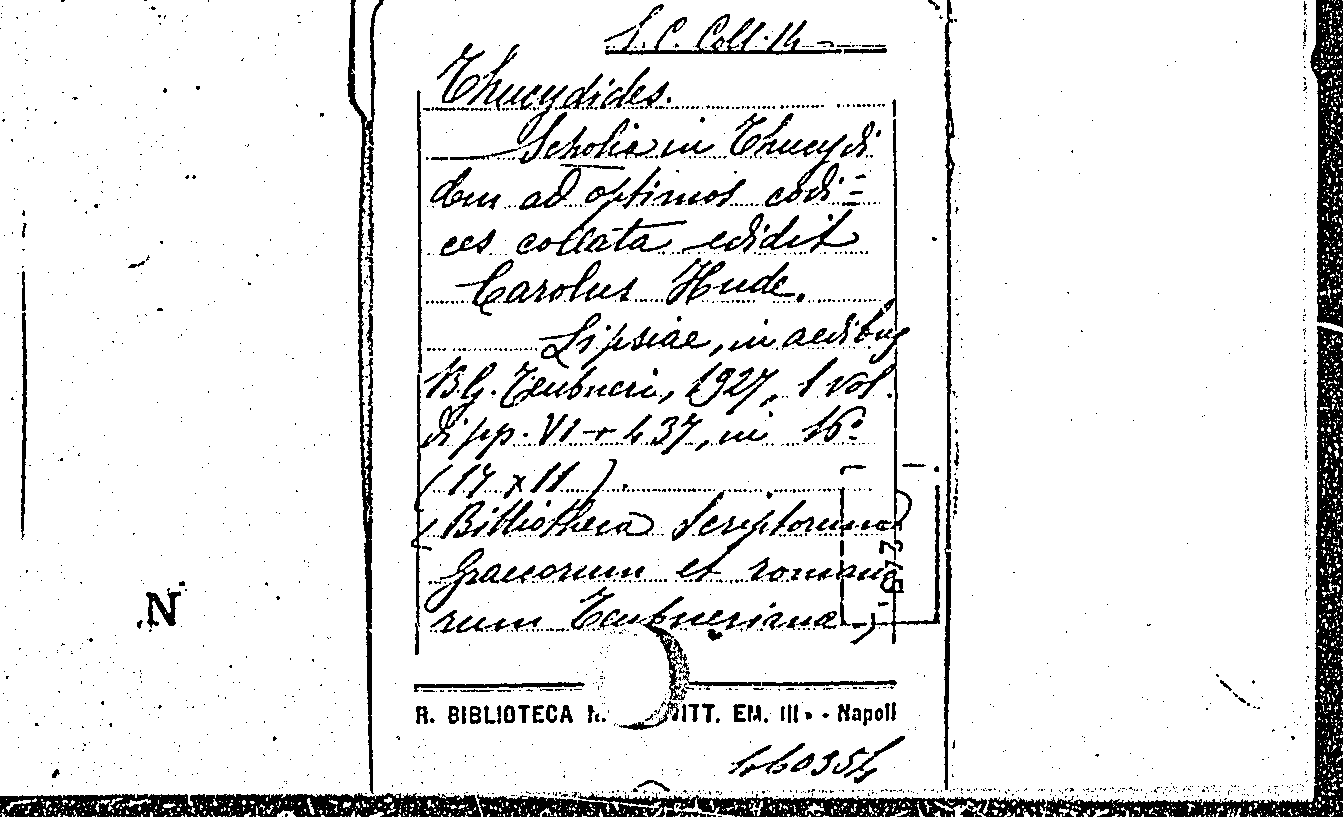 S. C. Coll. 14
Thucydides.
Scholia in Thucydi
dem ad optimos codi=
ces collata edidit
Carolus Hude.
Lipsiae, in aedibus
B.G. Teubneri, 1927, 1 vol.
di pp. VI + 437, in 16º
(17 x 11).
(Bibliotheca Scriptorum
Graecorum et romano
rum Teubneriana)
R. BIBLIOTECA N. VITT. EM. III - Napoli
460354
N